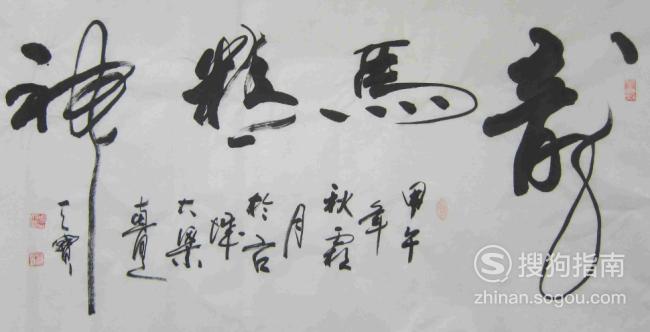 龍馬精神
甲午
年
秋霜
月
於古
城
大梁
搜狗指南
zhinan.sogou.com